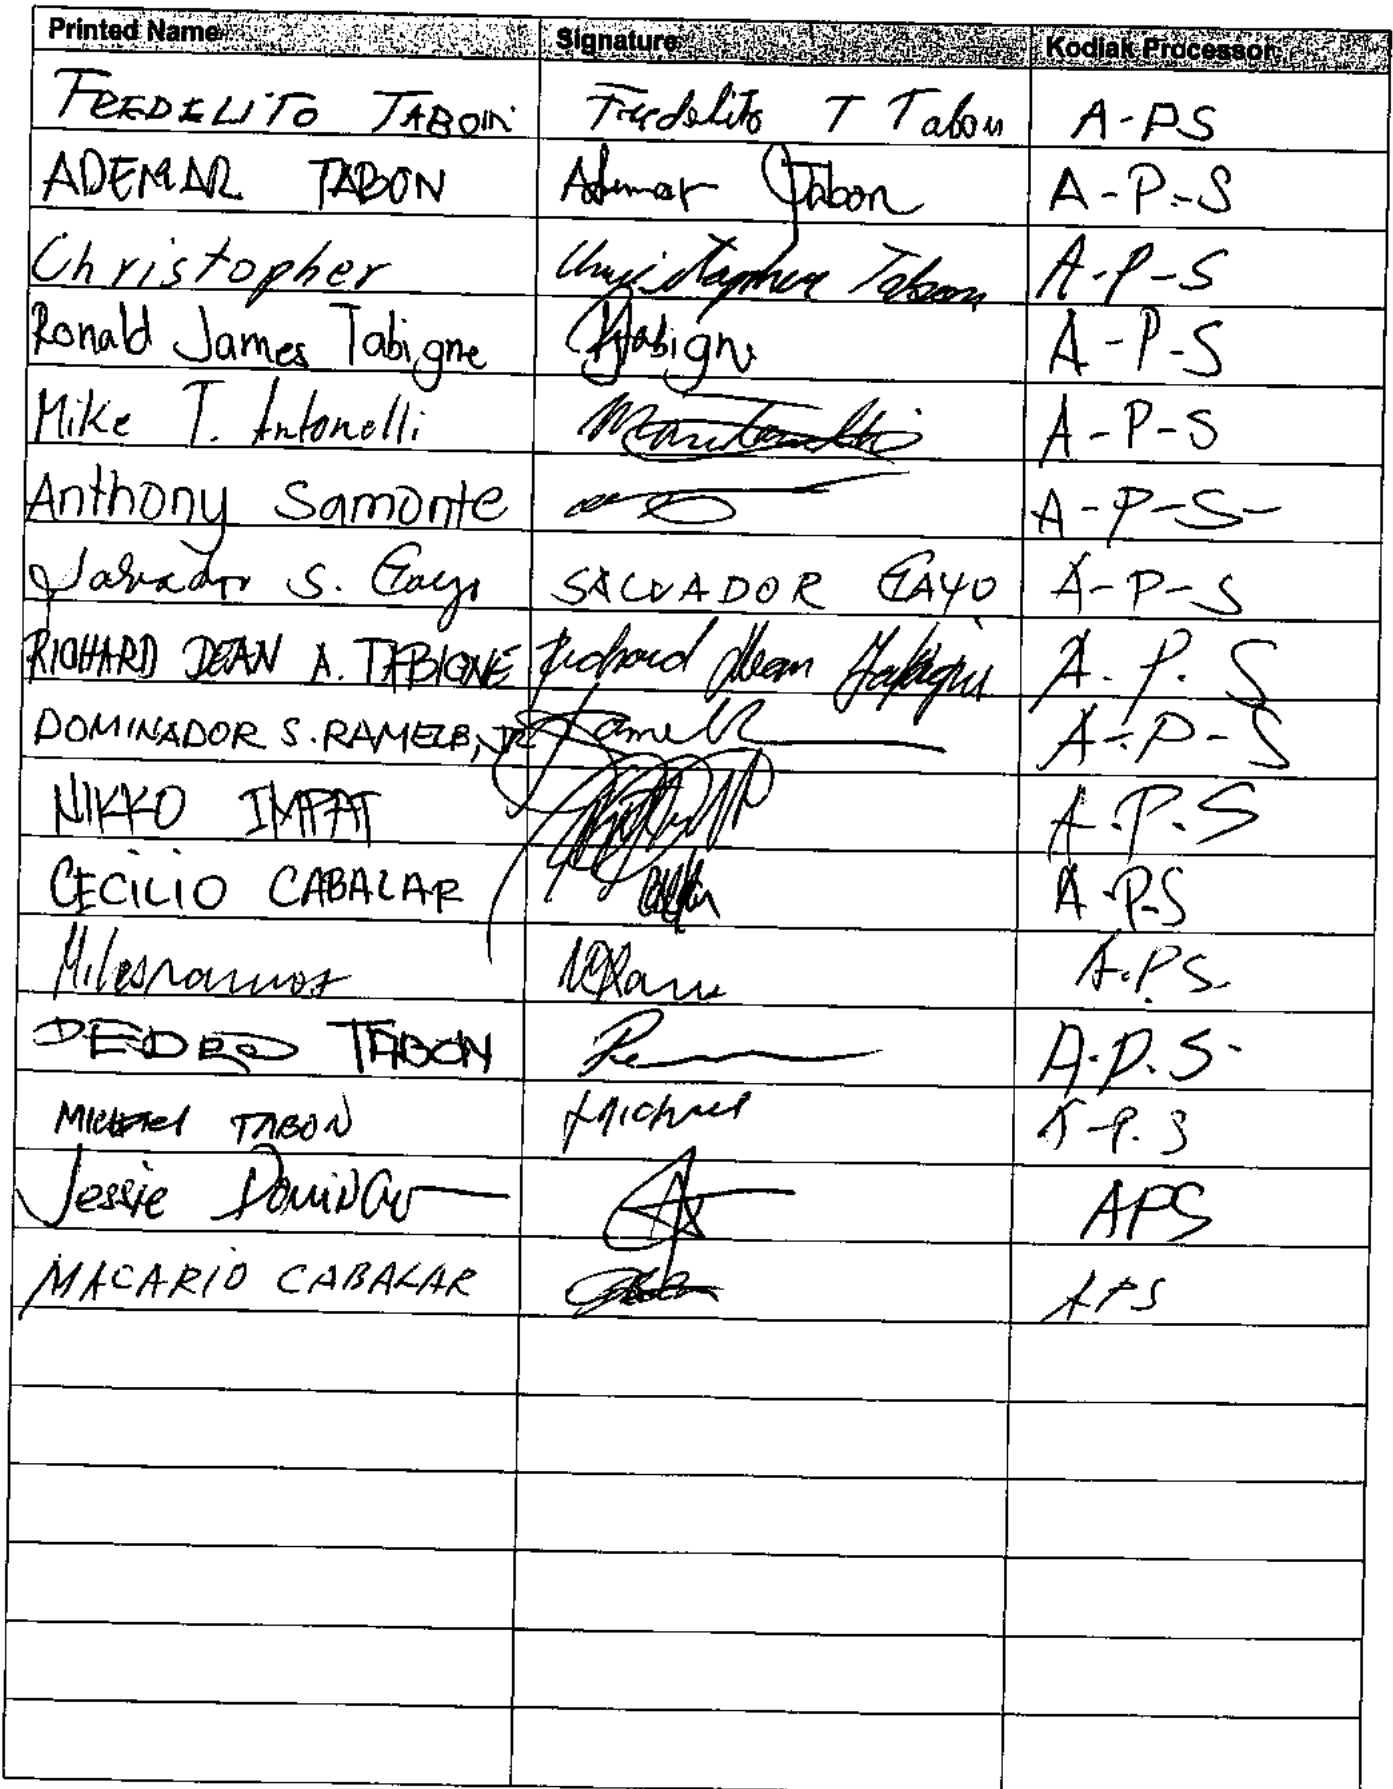 Printed Name Signature Kodiak Processor
FREDELITO TABON Fredelito T Tabon A-PS
ADEMAR TABON Ademar Tabon A-P-S
Christopher Christopher Tabon A-P-S
Ronald James Tabigne Tabigne A-P-S
Mike T. Antonelli A-P-S
Anthony Samonte A-P-S-
Salvador S. Gayo SALVADOR GAYO A-P-S
RICHARD DEAN A. TABIGNE Richard Dean Tabigne A.P.S
DOMINADOR S. RAMELB, JR A-P-S
NIKKO IMPAT A.P.S
CECILIO CABALAR A-P-S
Milesramos A.P.S.
PEDRO TABON A.P.S-
Michael TABON Michael A-P.S
Jessie Domingo APS
MACARIO CABALAR APS